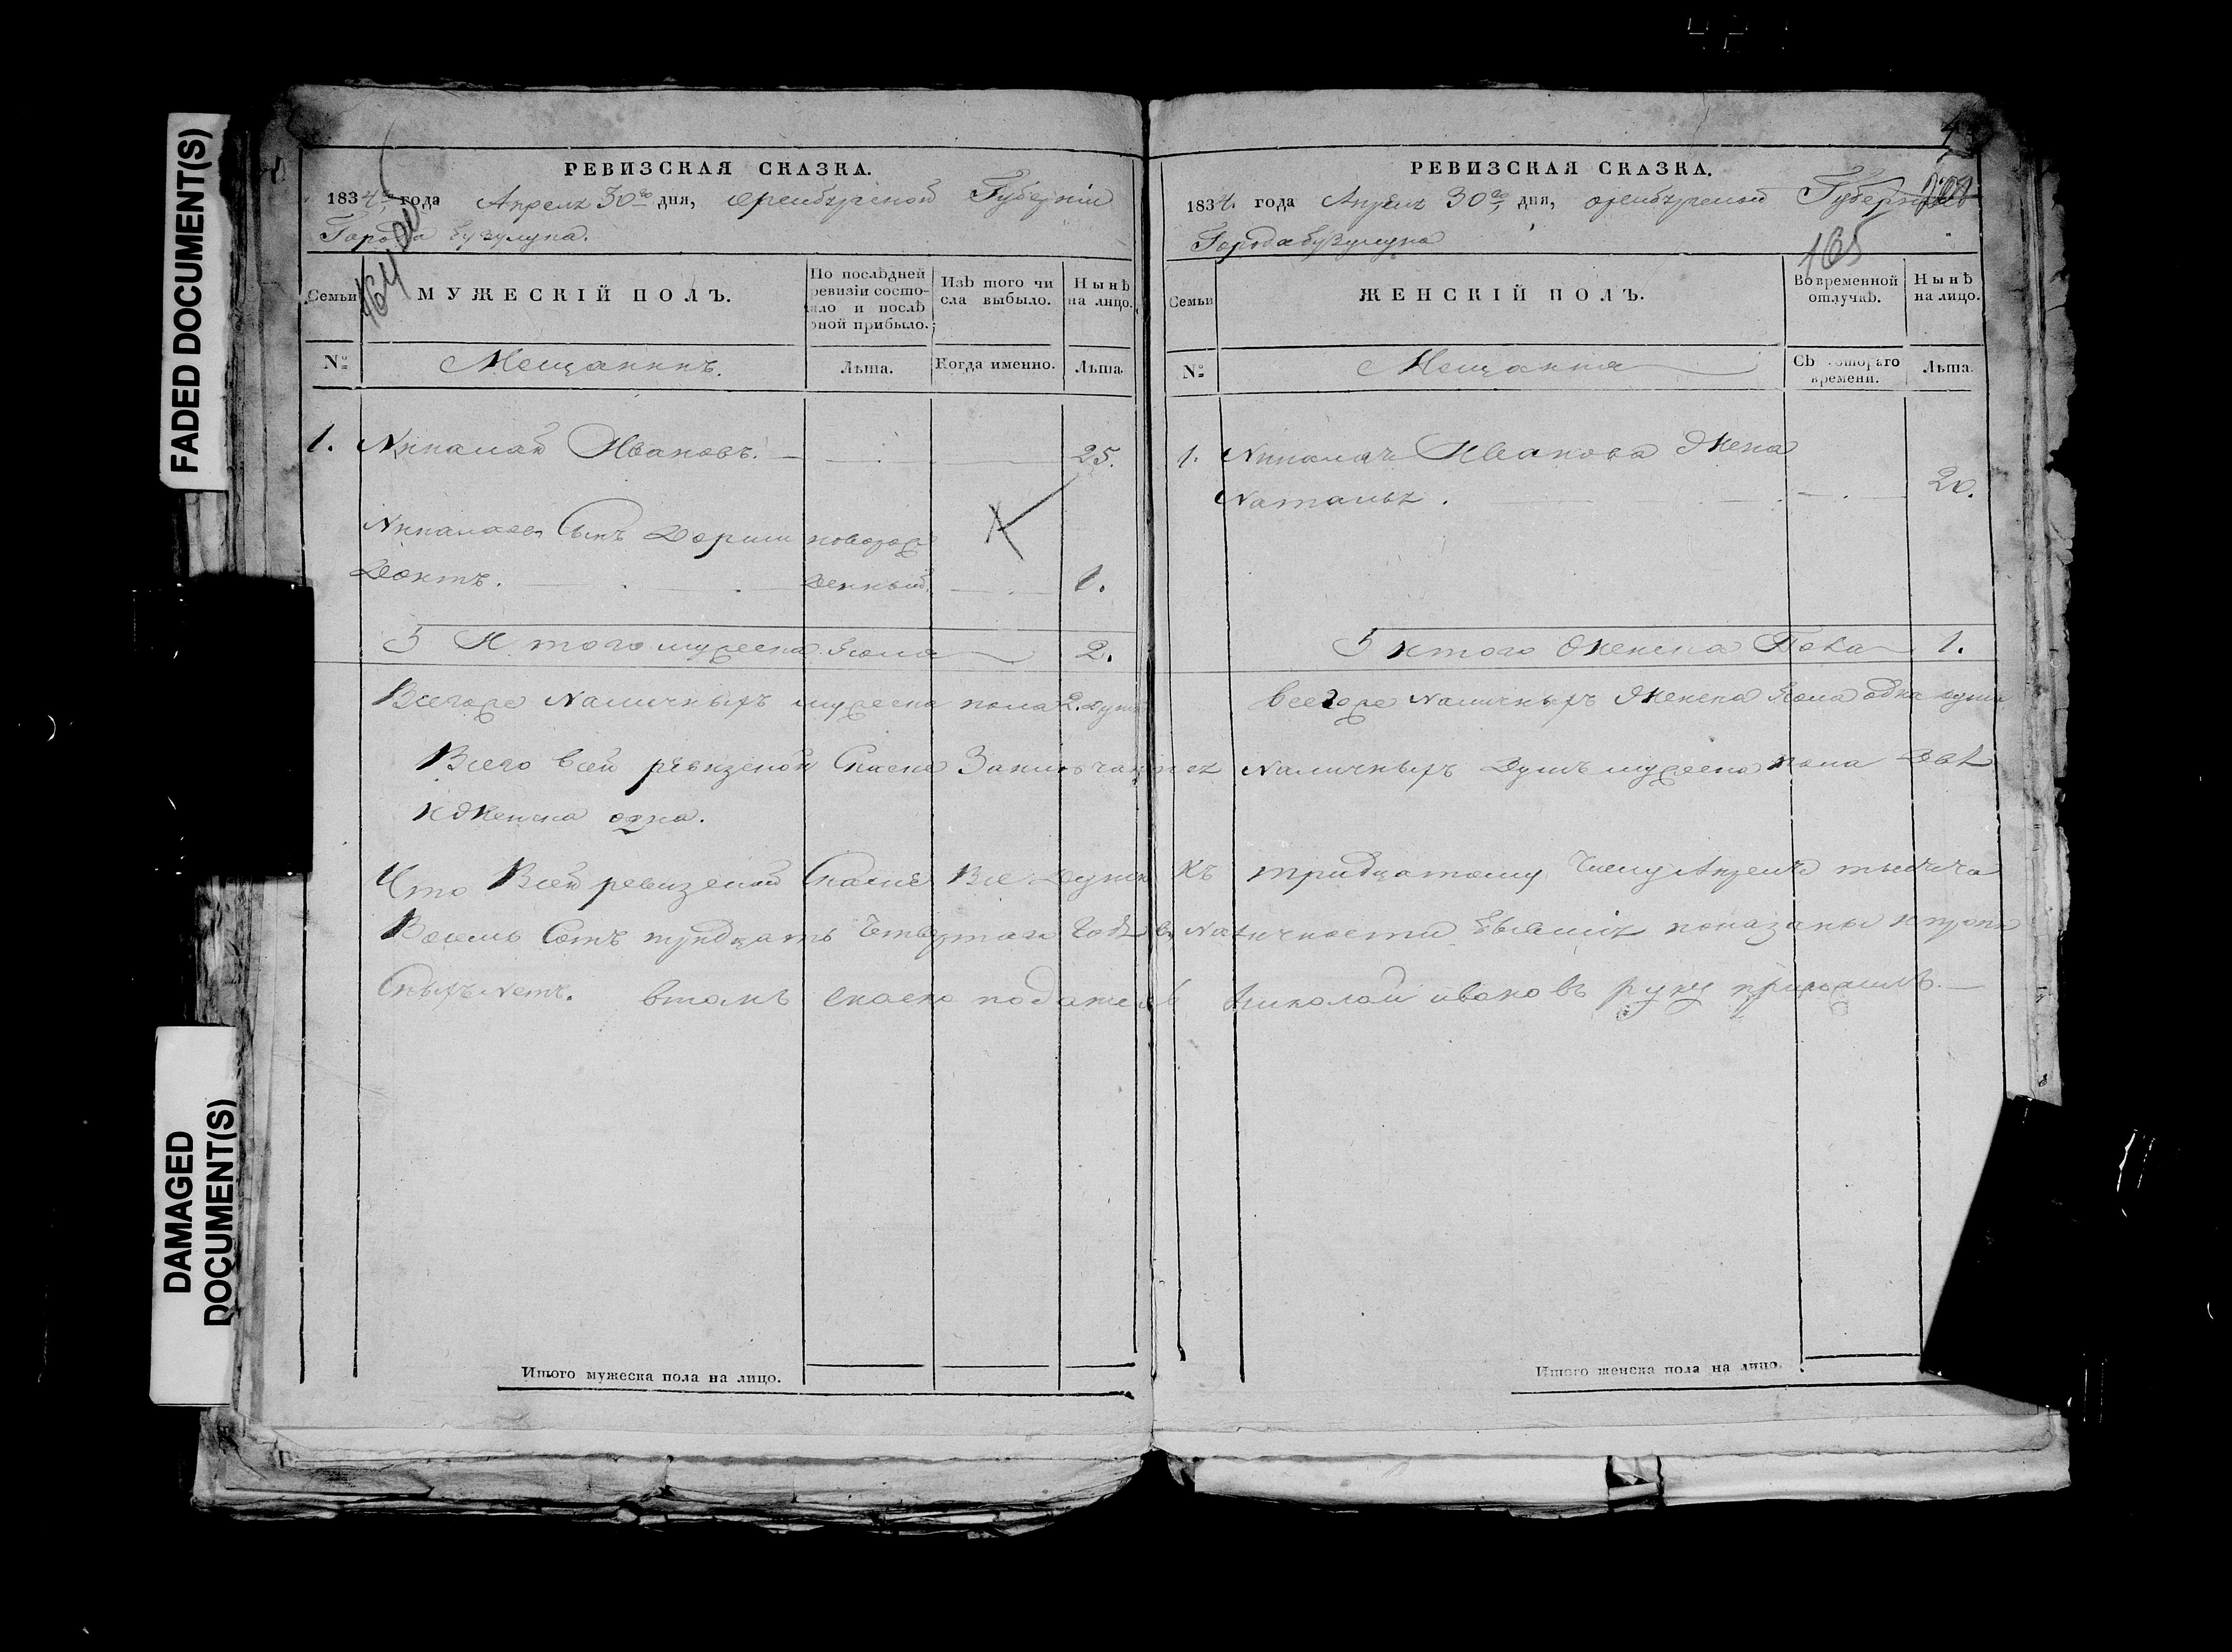 FADED DOCUMENT(S)
DAMAGED
DOCUMENT(S)
РЕВИЗСКАЯ СКАЗКА.
1834 года Апреля 30го дня, оренбургской Губернии
Города бузулука.
164
Семьи
МУЖЕСКІЙ ПОЛЪ.
По послѣдней
ревизіи состо-
яло и послѣ
оной прибыло.
Изъ того чи
сла выбыло.
Нынѣ
на лицо.
№
Мещанинъ.
Лѣта.
Когда именно.
Лѣта.
1. Никалай Ивановъ. 25.
Никалаевъ Сынъ новорож
денный 1.
Итого мужеска пола 2.
Всегоже Наличныхъ мужеска пола 2. души
РЕВИЗСКАЯ СКАЗКА.
1834. года Апреля 30го дня, оренбургской Губернии
Города бузулука
165
Семьи
ЖЕНСКІЙ ПОЛЪ.
Во временной
отлучкѣ.
Нынѣ
на лицо.
№
Мещанка
Съ котораго
времени.
Лѣта.
1. Никалая Иванова Жена
Наталья. 20.
Итого Женска Пола 1.
всегоже Наличныхъ Женска Пола одна душа
Всего всей ревизской Сказке Заключается Наличныхъ Душъ мужеска пола Две
и Женска одна.
Что Всей ревизской Сказке Все Души Къ тридцатому Числу Апреля тысяча
Восемь Сотъ тридцать Четвертаго Года в Наличности бывшия показаны и
Нетъ. втомъ сказке податель Николай ивановъ руку приложилъ.
Итого мужеска пола на лицо.
Итого женска пола на лицо.